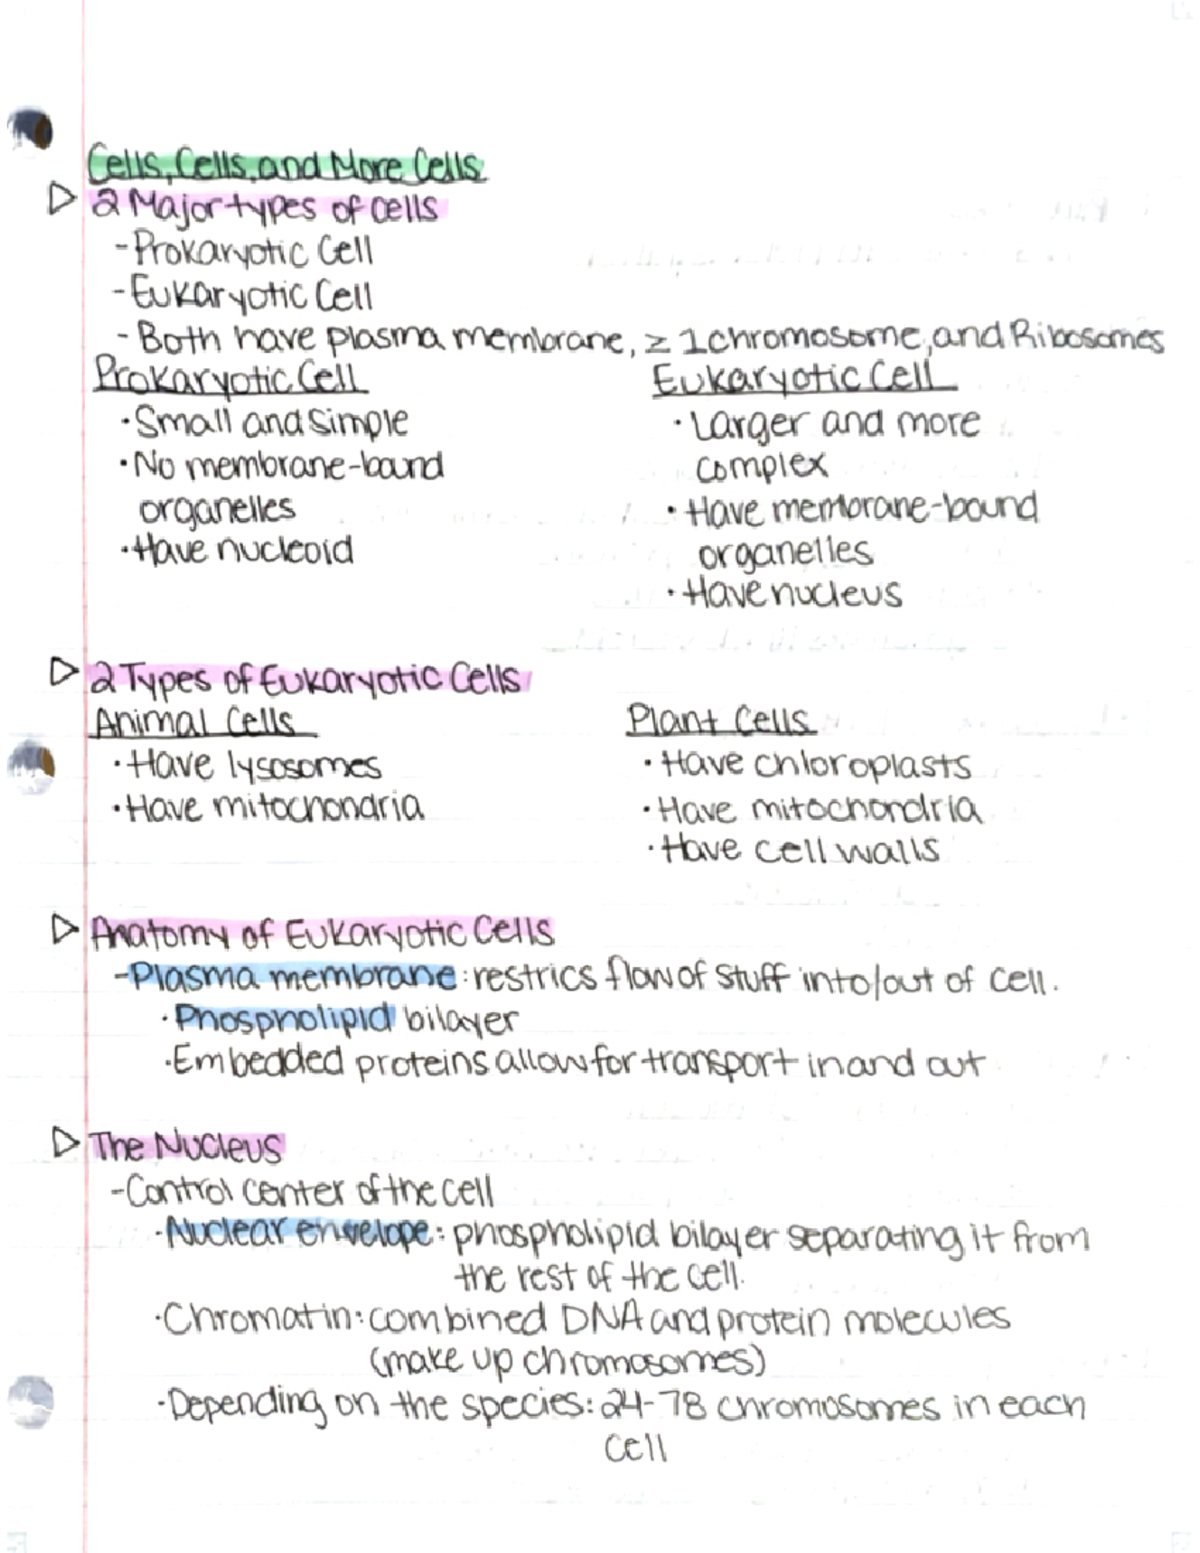 Cells, Cells, and More Cells
▷ 2 Major types of cells
-Prokaryotic Cell
-Eukaryotic Cell
-Both have plasma membrane, ≥ 1 chromosome, and Ribosomes
Prokaryotic Cell
·Small and simple
·No membrane-bound
organelles
·Have nucleoid
Eukaryotic Cell
·Larger and more
complex
·Have membrane-bound
organelles
·Have nucleus
▷ 2 Types of Eukaryotic Cells
Animal Cells
·Have lysosomes
·Have mitochondria
Plant Cells
·Have chloroplasts
·Have mitochondria
·Have cell walls
▷ Anatomy of Eukaryotic Cells
-Plasma membrane: restrics flow of stuff into/out of cell.
·Phospholipid bilayer
·Embedded proteins allow for transport in and out
▷ The Nucleus
-Control center of the cell
·Nuclear envelope: phospholipid bilayer separating it from
the rest of the cell.
·Chromatin: combined DNA and protein molecules
(make up chromosomes)
·Depending on the species: 24-78 chromosomes in each
cell